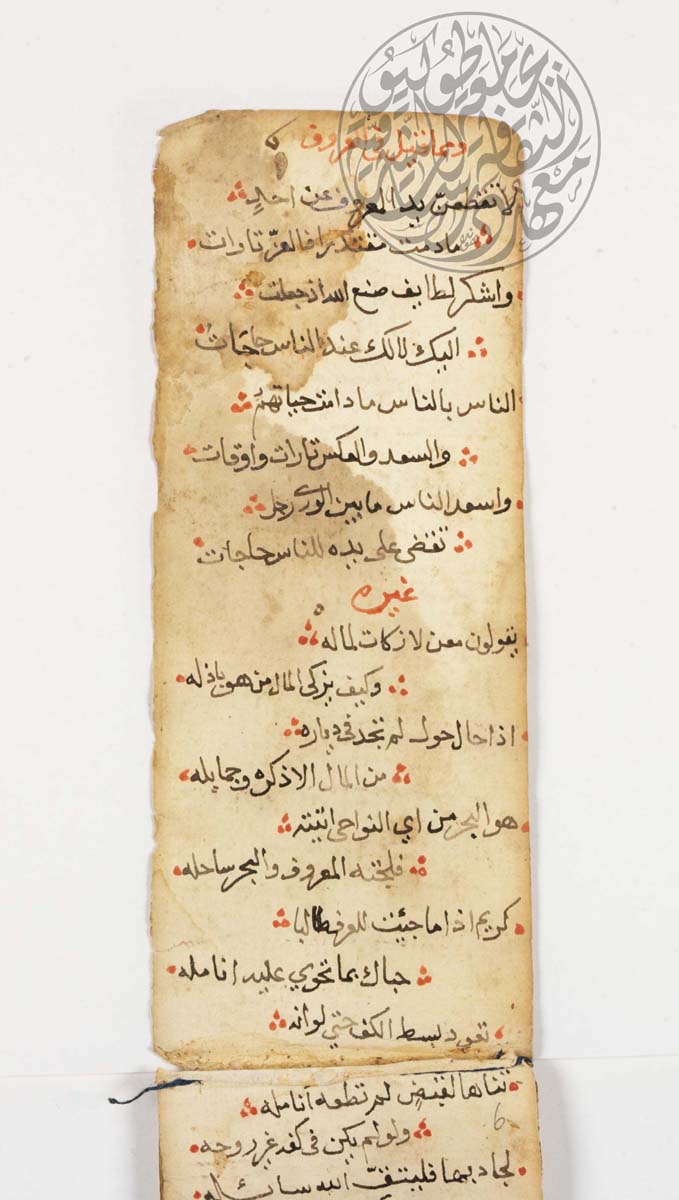 ومما قيل في المعروف
لا تقطعن يد المعروف عن احدٍ
ما دمت مقتدرا فالعز تارات
واشكر لطايف صنع الله اذ جعلت
اليك لا لك عند الناس حاجات
الناس بالناس ما دامت حياتهمُ
والسعد والعكس تارات واوقات
واسعد الناس ما بين الورى رجل
تقضى على يده للناس حاجات
غيره
يقولون معن لا زكات لماله
وكيف يزكى المال من هو باذله
اذا حال حول لم تجد في دياره
من المال الا ذكره وجمايله
هو البحر من اي النواحي اتيته
فلجته المعروف والبحر ساحله
كريم اذا ما جيئت للعرف طالبا
حباك بما تحوي عليه انامله
تعود بسط الكف حتي لوانه
ثناها لقبضٍ لم تطعه انامله
ولو لم يكن في كفه غير روحه
لجاد بها فليتقّ الله سائله
6